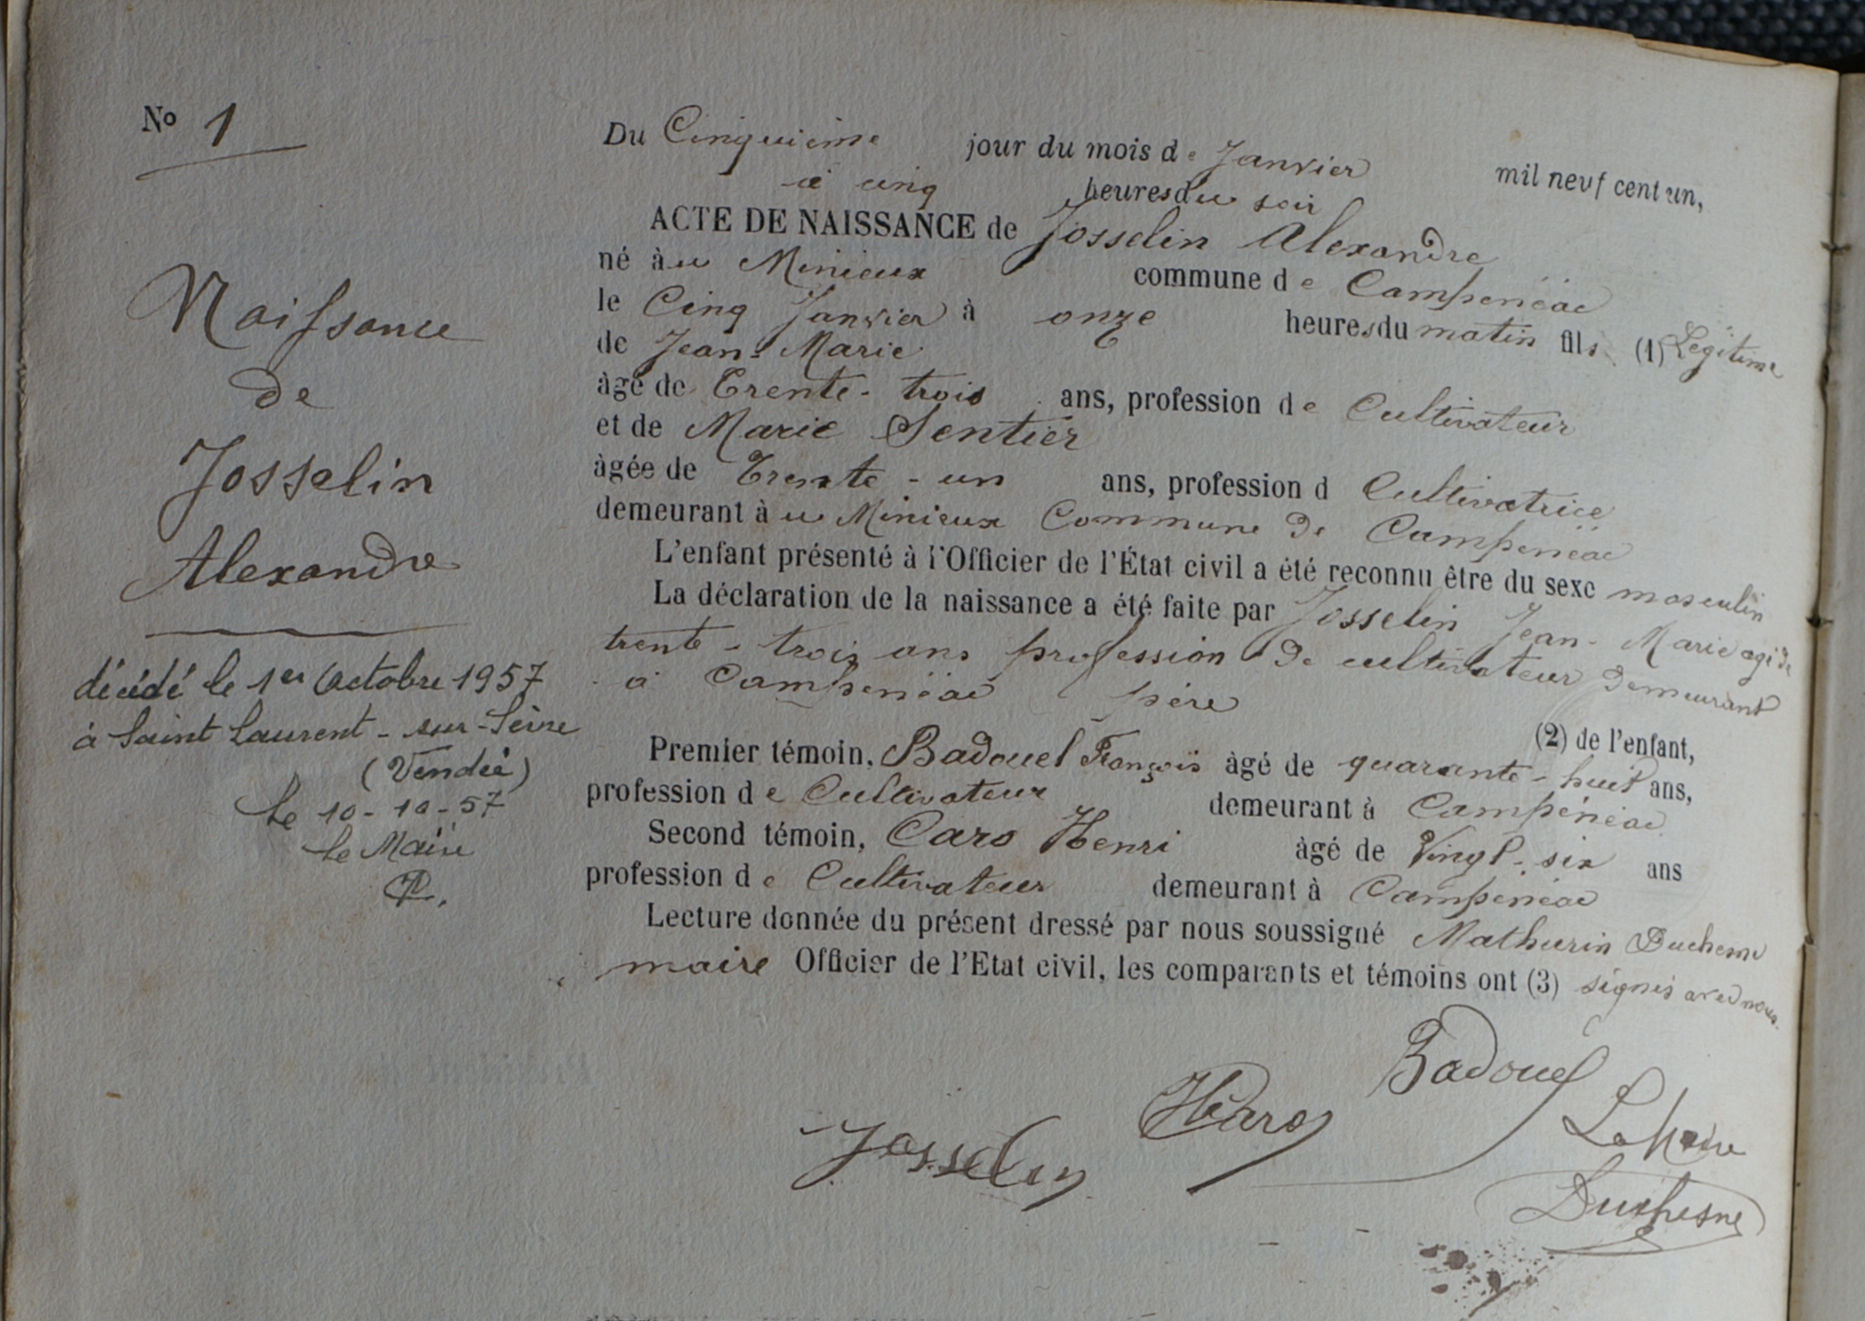 No 1
Naissance
de
Josselin
Alexandre
décédé le 1er Octobre 1957
à Saint Laurent-sur-Sèvre
(Vendée)
Le 10-10-57
Le Maire
Du Cinquième jour du mois de Janvier mil neuf cent un,
à cinq heures du soir
ACTE DE NAISSANCE de Josselin Alexandre
né à u Minieux commune de Campénéac
le Cinq Janvier à onze heures du matin fils (1) Légitime
de Jean-Marie
âgé de Trente-trois ans, profession de Cultivateur
et de Marie Sentier
âgée de Trente-un ans, profession d Cultivatrice
demeurant à u Minieux Commune de Campénéac
L'enfant présenté à l'Officier de l'État civil a été reconnu être du sexe masculin
La déclaration de la naissance a été faite par Josselin Jean-Marie agé de
trente-trois ans profession de cultivateur demeurant
à Campénéac père
(2) de l'enfant,
Premier témoin, Badouel François âgé de quarante-huit ans,
profession de Cultivateur demeurant à Campénéac
Second témoin, Caro Henri âgé de Vingt-six ans
profession de Cultivateur demeurant à Campénéac
Lecture donnée du présent dressé par nous soussigné Mathurin Duchesne
maire Officier de l'Etat civil, les comparants et témoins ont (3) signés avec nous.
Badouel
HCaro
Josselin
Le Maire
Duchesne